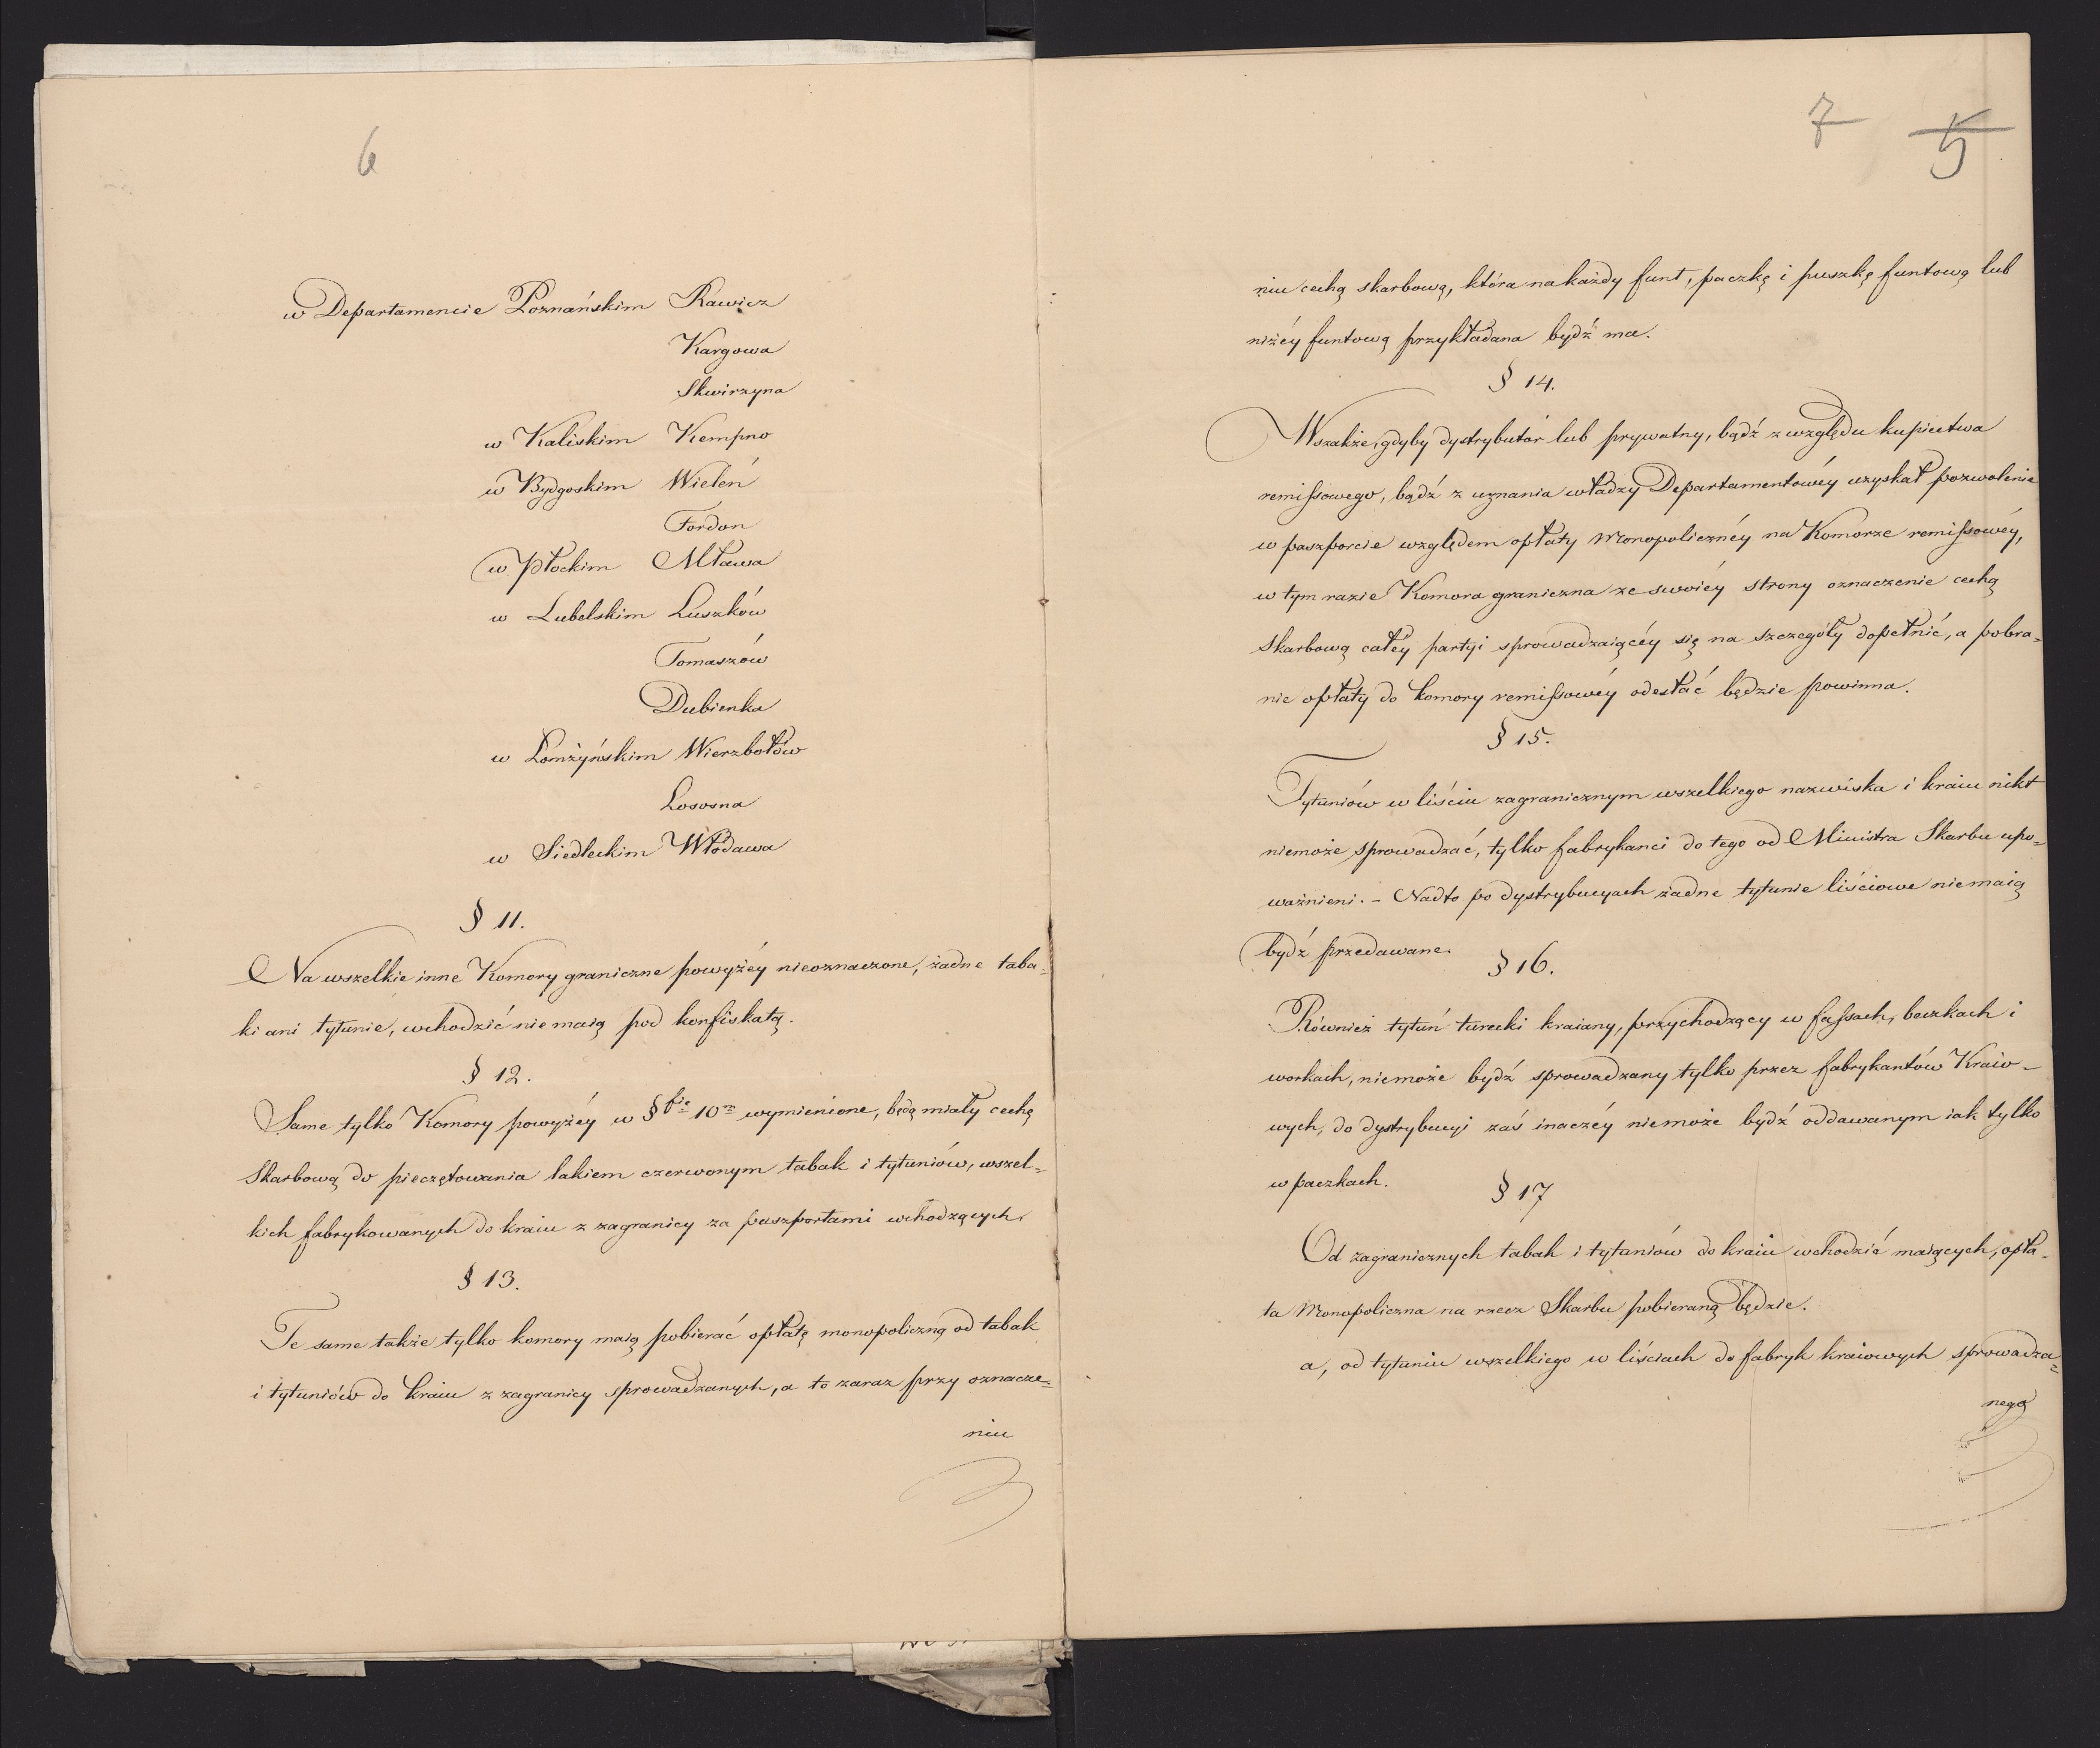 6
w Departamencie Poznańskim Rawicz
Kargowa
Skwirzyna
w Kaliskim Kempno
w Bydgoskim Wieleń
Fordon
w Płockim Mława
w Lubelskim Luszków
Tomaszów
Dubienka
w Łomżyńskim Wierzbołów
Łososna
w Siedleckim Włodawa
§ 11.
Na wszelkie inne Komory graniczne powyżéy nieoznaczone, żadne taba-
ki ani tytunie, wchodzić nie maią pod konfiskatą.
§ 12.
Same tylko Komory powyżéy w § fie 10m wymienione, będą miały cechę
Skarbową do pieczętowania lakiem czerwonym tabak i tytuniów, wszel=
kich fabrykowanych do kraiu z zagranicy za paszportami wchodzących.
§ 13.
Te same także tylko komory maią pobierać opłatę monopoliczną od tabak
i tytuniów do kraiu z zagranicy sprowadzanych, a to zaraz przy oznacze=
niu
7 5
niu cechą skarbową, która na każdy funt, paczkę i puszkę funtową lub
niżéy funtową przykładana bydź ma.
§ 14.
Wszakże, gdyby dystrybutor lub prywatny, bądź z względu kupiectwa
remissowego, bądź z uznania władzy Departamentowéy uzyskał pozwolenie
w paszporcie względem opłaty Monopolicznéy na Komorze remissowéy,
w tym razie Komora graniczna ze swoiéy strony oznaczenie cechą
Skarbową całéy partyi sprowadzaiącéy się na szczegóły dopełnić, a pobra=
nie opłaty do komory remissowéy odesłać będzie powinna.
§ 15.
Tytuniów w liściu zagranicznym wszelkiego nazwiska i kraiu nikt
niemoże sprowadzać, tylko fabrykanci do tego od Ministra Skarbu upo=
ważnieni. - Nadto po dystrybucyach żadne tytunie liściowe nie maią
bydź przedawane.
§ 16.
Również tytuń turecki kraiany, przychodzący w fassach, beczkach i
workach, niemoże bydź sprowadzany tylko przez fabrykantów Kraio-
wych, do dystrybucyi zaś inaczéy niemoże bydź oddawanym iak tylko
w paczkach.
§ 17
Od zagranicznych tabak i tytaniów do kraiu wchodzić maiących, opła-
ta Monopoliczna na rzecz Skarbu pobieraną będzie.
a, od tytuniu wszelkiego w liściach do fabryk kraiowych sprowadza=
nego